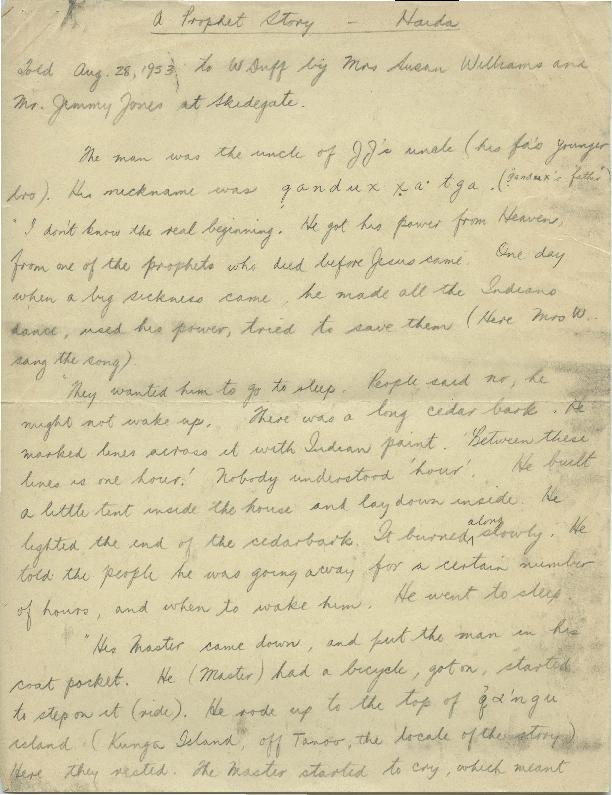 A Prophet Story — Haida
Told Aug. 28, 1953, to W Duff by Mrs Susan Williams and
Mr. Jimmy Jones at Skidegate.
The man was the uncle of JJ's uncle (his fa's younger
bro). His nickname was gandux xa·tga. (gandux's father)
"I don't know the real beginning. He got his power from Heaven,
from one of the prophets who died before Jesus came. One day
when a big sickness came, he made all the Indians
dance, used his power, tried to save them (Here Mrs W.
sang the song)
"They wanted him to go to sleep. People said no, he
might not wake up. There was a long cedar bark. He
marked lines across it with Indian paint. 'Between these
lines is one hour.' Nobody understood 'hour'. He built
a little tent inside the house and lay down inside. He
lighted the end of the cedarbark. It burned along slowly. He
told the people he was going away for a certain number
of hours, and when to wake him. He went to sleep.
"His Master came down, and put the man in his
coat pocket. He (Master) had a bicycle, got on, started
to step on it (ride). He rode up to the top of
island (Kunga Island, off Tanoo, the locale of the story)
Here they rested. The Master started to cry, which meant